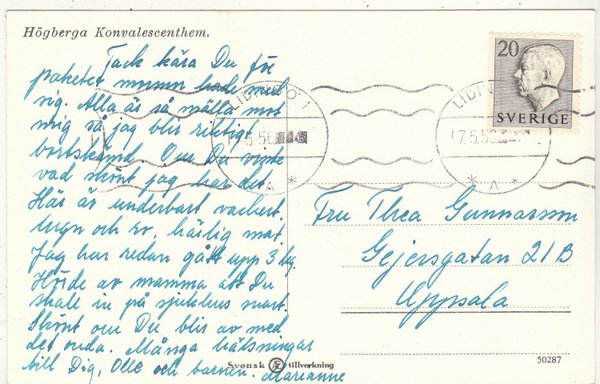 Högberga Konvalescenthem.
Tack kära Du för
paketet mamma hade med
sig. Alla är så snälla mot
mig så jag blir riktigt
bortskämd. Om Du visste
vad skönt jag har det.
Här är underbart vackert.
lugn och ro, härlig mat.
Jag har redan gått upp 3 kg.
Hörde av mamma att Du
skall in på sjukhus snart.
Skönt om Du blir av med
det onda. Många hälsningar
till Dig, Olle och barnen. Marianne
20
SVERIGE
LIDINGÖ 1
17.5.50
* A *
Fru Thea Gunnarsson
Gejersgatan 21 B
Uppsala
Svensk tillverkning
50287